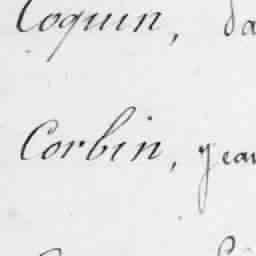 Coquin, da
Corbin, jean